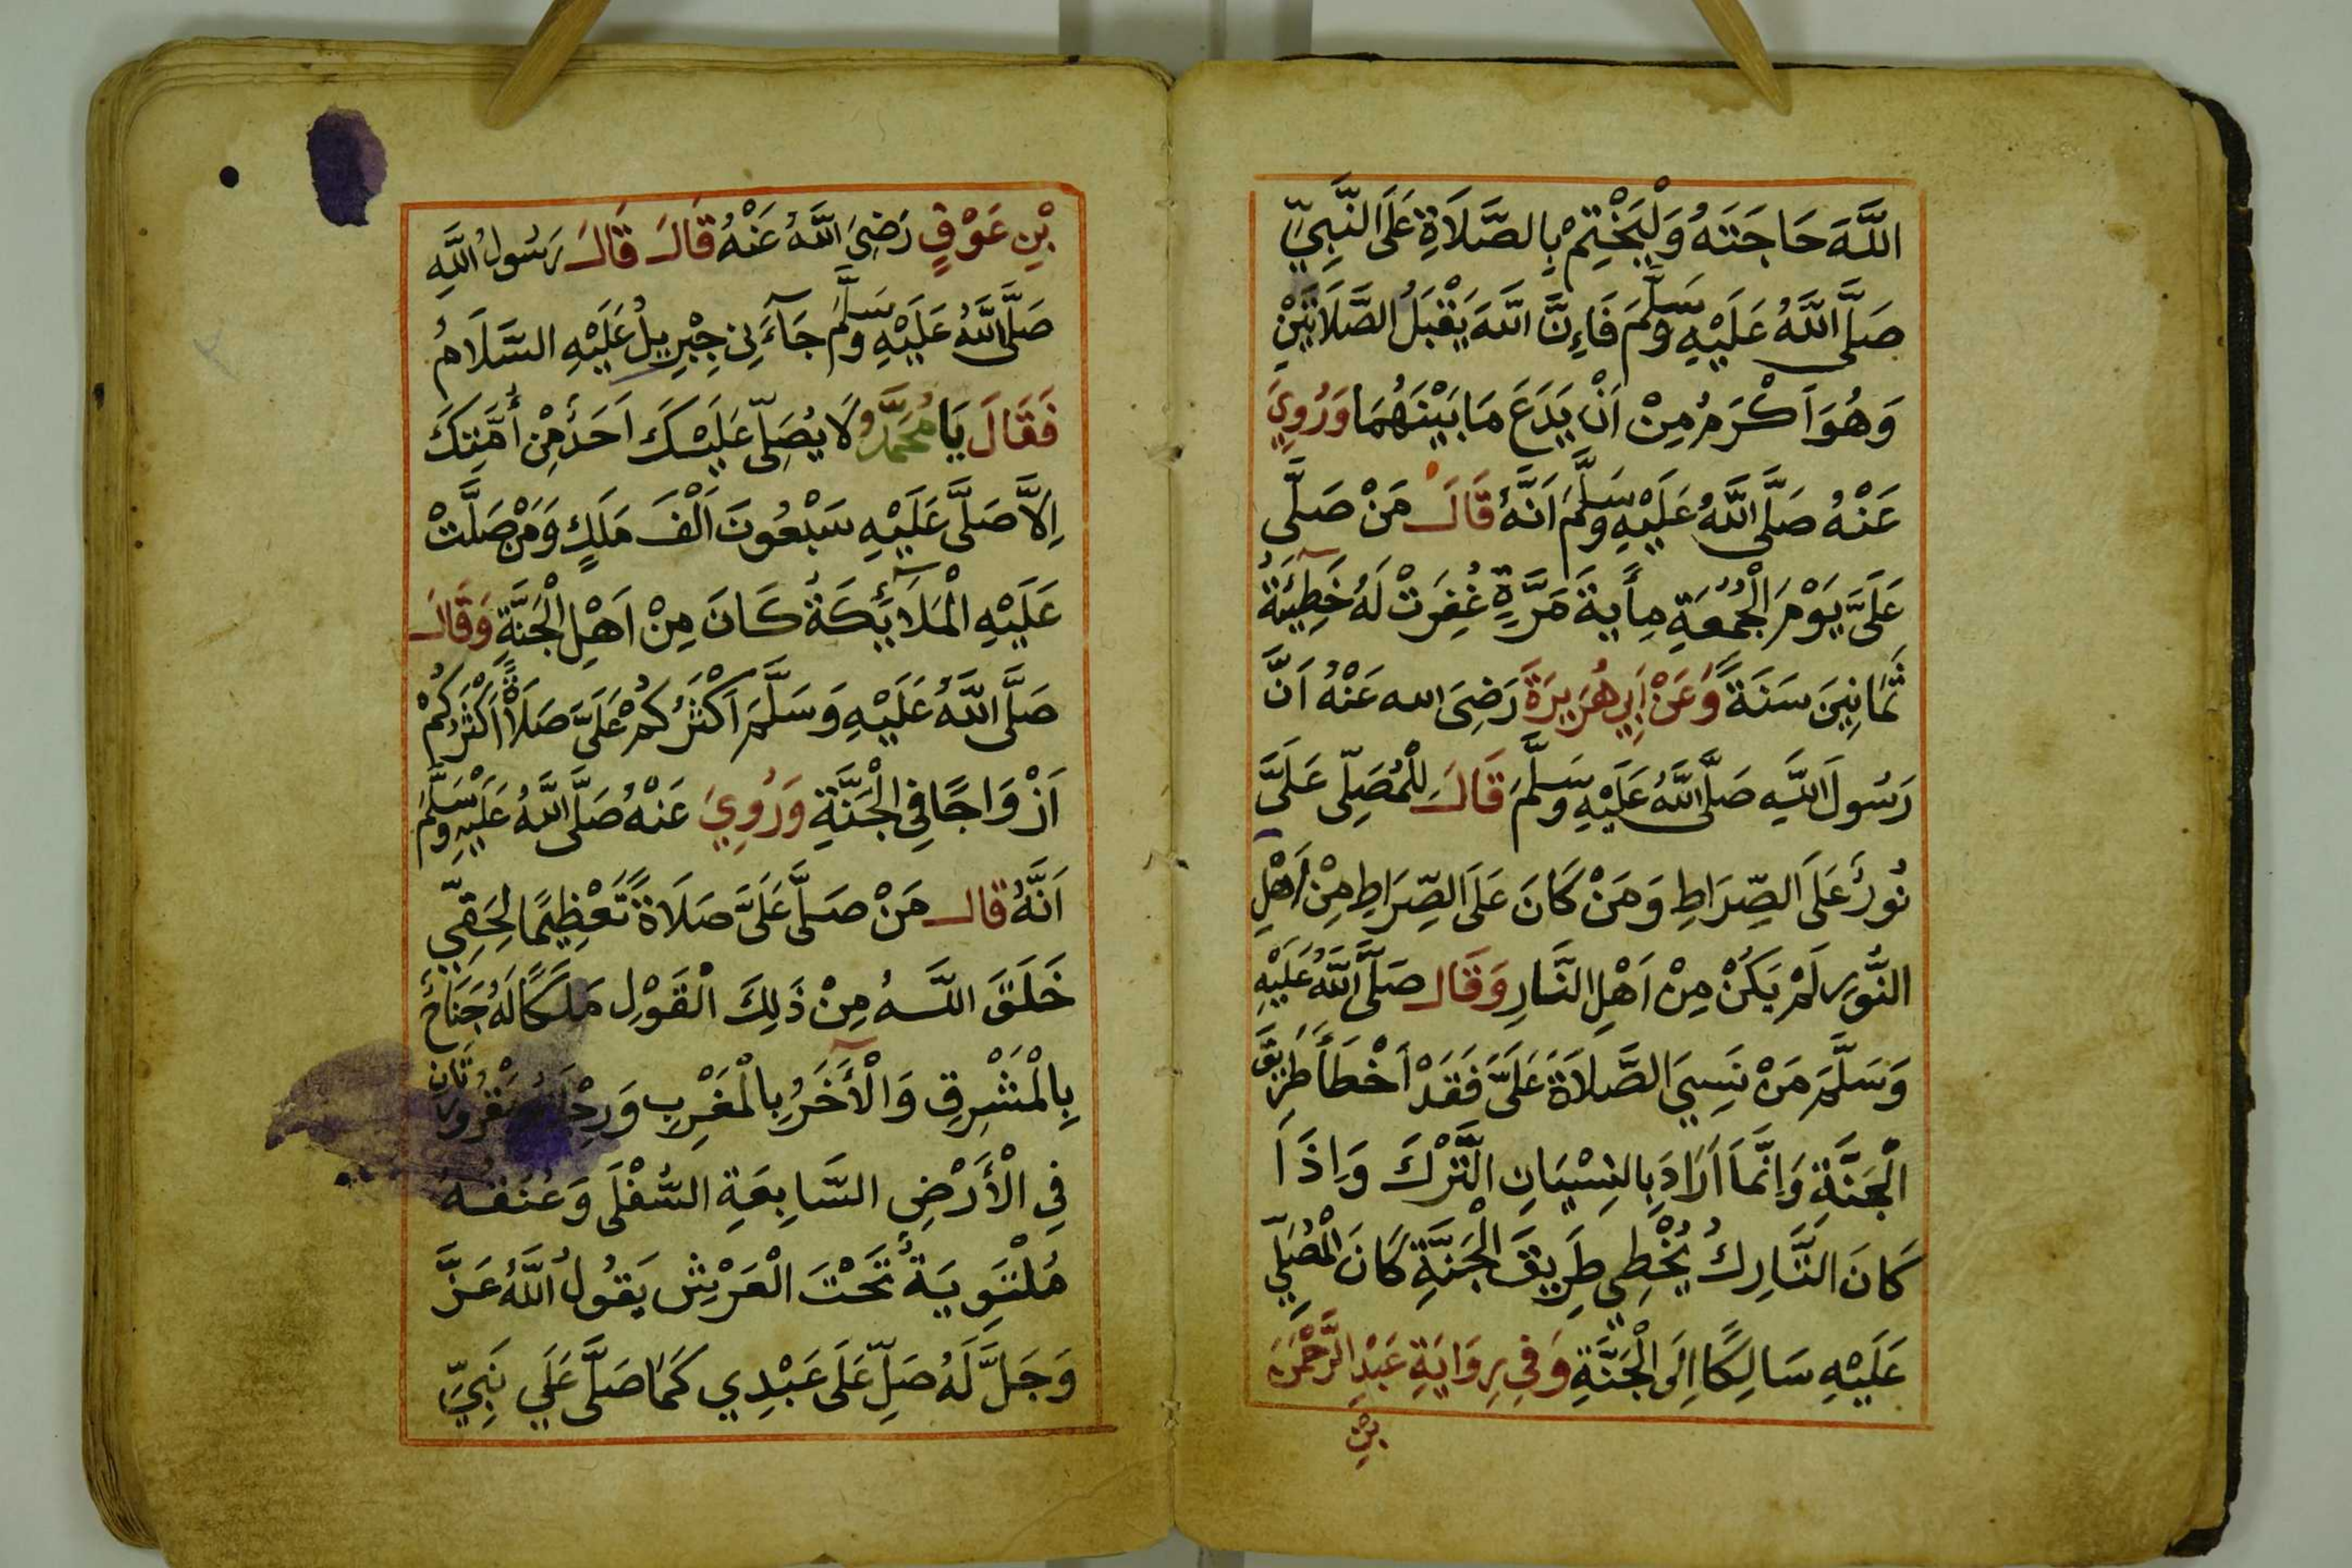 اللَّهَ حَاجَتَهُ وَلْيَخْتِمْ بِالصَّلَاةِ عَلَى النَّبِيِّ
صَلَّى اللَّهُ عَلَيْهِ وَسَلَّمَ فَاِنَّ اللَّهَ يَقْبَلُ الصَّلَاتَيْنِ
وَهُوَ اَكْرَمُ مِنْ اَنْ يَدَعَ مَا بَيْنَهُمَا وَرُوِيَ
عَنْهُ صَلَّى اللَّهُ عَلَيْهِ وَسَلَّمَ اَنَّهُ قَالَ مَنْ صَلَّى
عَلَيَّ يَوْمَ الْجُمُعَةِ مِأَيةَ مَرَّةٍ غُفِرَتْ لَهُ خَطِيئَةُ
ثَمَانِينَ سَنَةً وَعَنْ اَبِي هُرَيْرَةَ رَضِيَ الله عَنْهُ اَنَّ
رَسُولَ اللَّهِ صَلَّى اللَّهُ عَلَيْهِ وَسَلَّمَ قَالَ لِلْمُصَلِّى عَلَيَّ
نُورٌ عَلَى الصِّرَاطِ وَمَنْ كَانَ عَلَى الصِّرَاطِ مِنْ اَهْلِ
النُّورِ لَمْ يَكُنْ مِنْ اَهْلِ النَّارِ وَقَالَ صَلَّى اللَّهُ عَلَيْهِ
وَسَلَّمَ مَنْ نَسِيَ الصَّلَاةَ عَلَيَّ فَقَدْ اَخْطَأَ طَرِيقَ
الْجَنَّةِ وَاِنَّمَا اَرَادَ بِالنِسْيَانِ التَّرْكَ وَاِذَا
كَانَ التَّارِكُ يُخْطِي طَرِيقَ الْجَنَّةِ كَانَ الْمُصَلِّي
عَلَيْهِ سَالِكًا اِلَى الْجَنَّةِ وَفِي رِوَايَةِ عَبْدِ الرَّحْمَنِ
بْنِ
بْنِ عَوْفٍ رَضِيَ اللَّهُ عَنْهُ قَالَ قَالَ رَسُولُ اللَّهِ
صَلَّى اللَّهُ عَلَيْهِ وَسَلَّمَ جَآءَنِي جِبْرِيلُ عَلَيْهِ السَّلَامُ
فَقَالَ يَا مُحَمَّدُ لَا يُصَلِّى عَلَيْكَ اَحَدٌ مِنْ أُمَّتِكَ
اِلَّا صَلَّى عَلَيْهِ سَبْعُونَ اَلْفَ مَلَكٍ وَمَنْ صَلَّتْ
عَلَيْهِ الْمَلَآئِكَةُ كَانَ مِنْ اَهْلِ الْجَنَّةِ وَقَالَ
صَلَّى اللَّهُ عَلَيْهِ وَسَلَّمَ اَكْثَرُكُمْ عَلَيَّ صَلَاةً اَكْثَرُكُمْ
اَزْوَاجًا فِي الْجَنَّةِ وَرُوِيَ عَنْهُ صَلَّى اللَّهُ عَلَيْهِ وَسَلَّمَ
اَنَّهُ قال مَنْ صَلَّى عَلَيَّ صَلَاةً تَعْظِيمًا لِحَقِّي
خَلَقَ اللَّهُ مِنْ ذَلِكَ الْقَوْلِ مَلَكًا لَهُ جَنَاحٌ
بِالْمَشْرِقِ وَالْأَخَرُ بِالْمَغْرِبِ مَقْرُورَتَانِ
فِي الْأَرْضِ السَّابِعَةِ السُّفْلَى وَعُنُقُهُ
مُلْتَوِيَةٌ تَحْتَ الْعَرْشِ يَقُولُ اللَّهُ عَزَّ
وَجَلَّ لَهُ صَلِّ عَلَى عَبْدِي كَمَا صَلَّى عَلَي نَبِيِّ